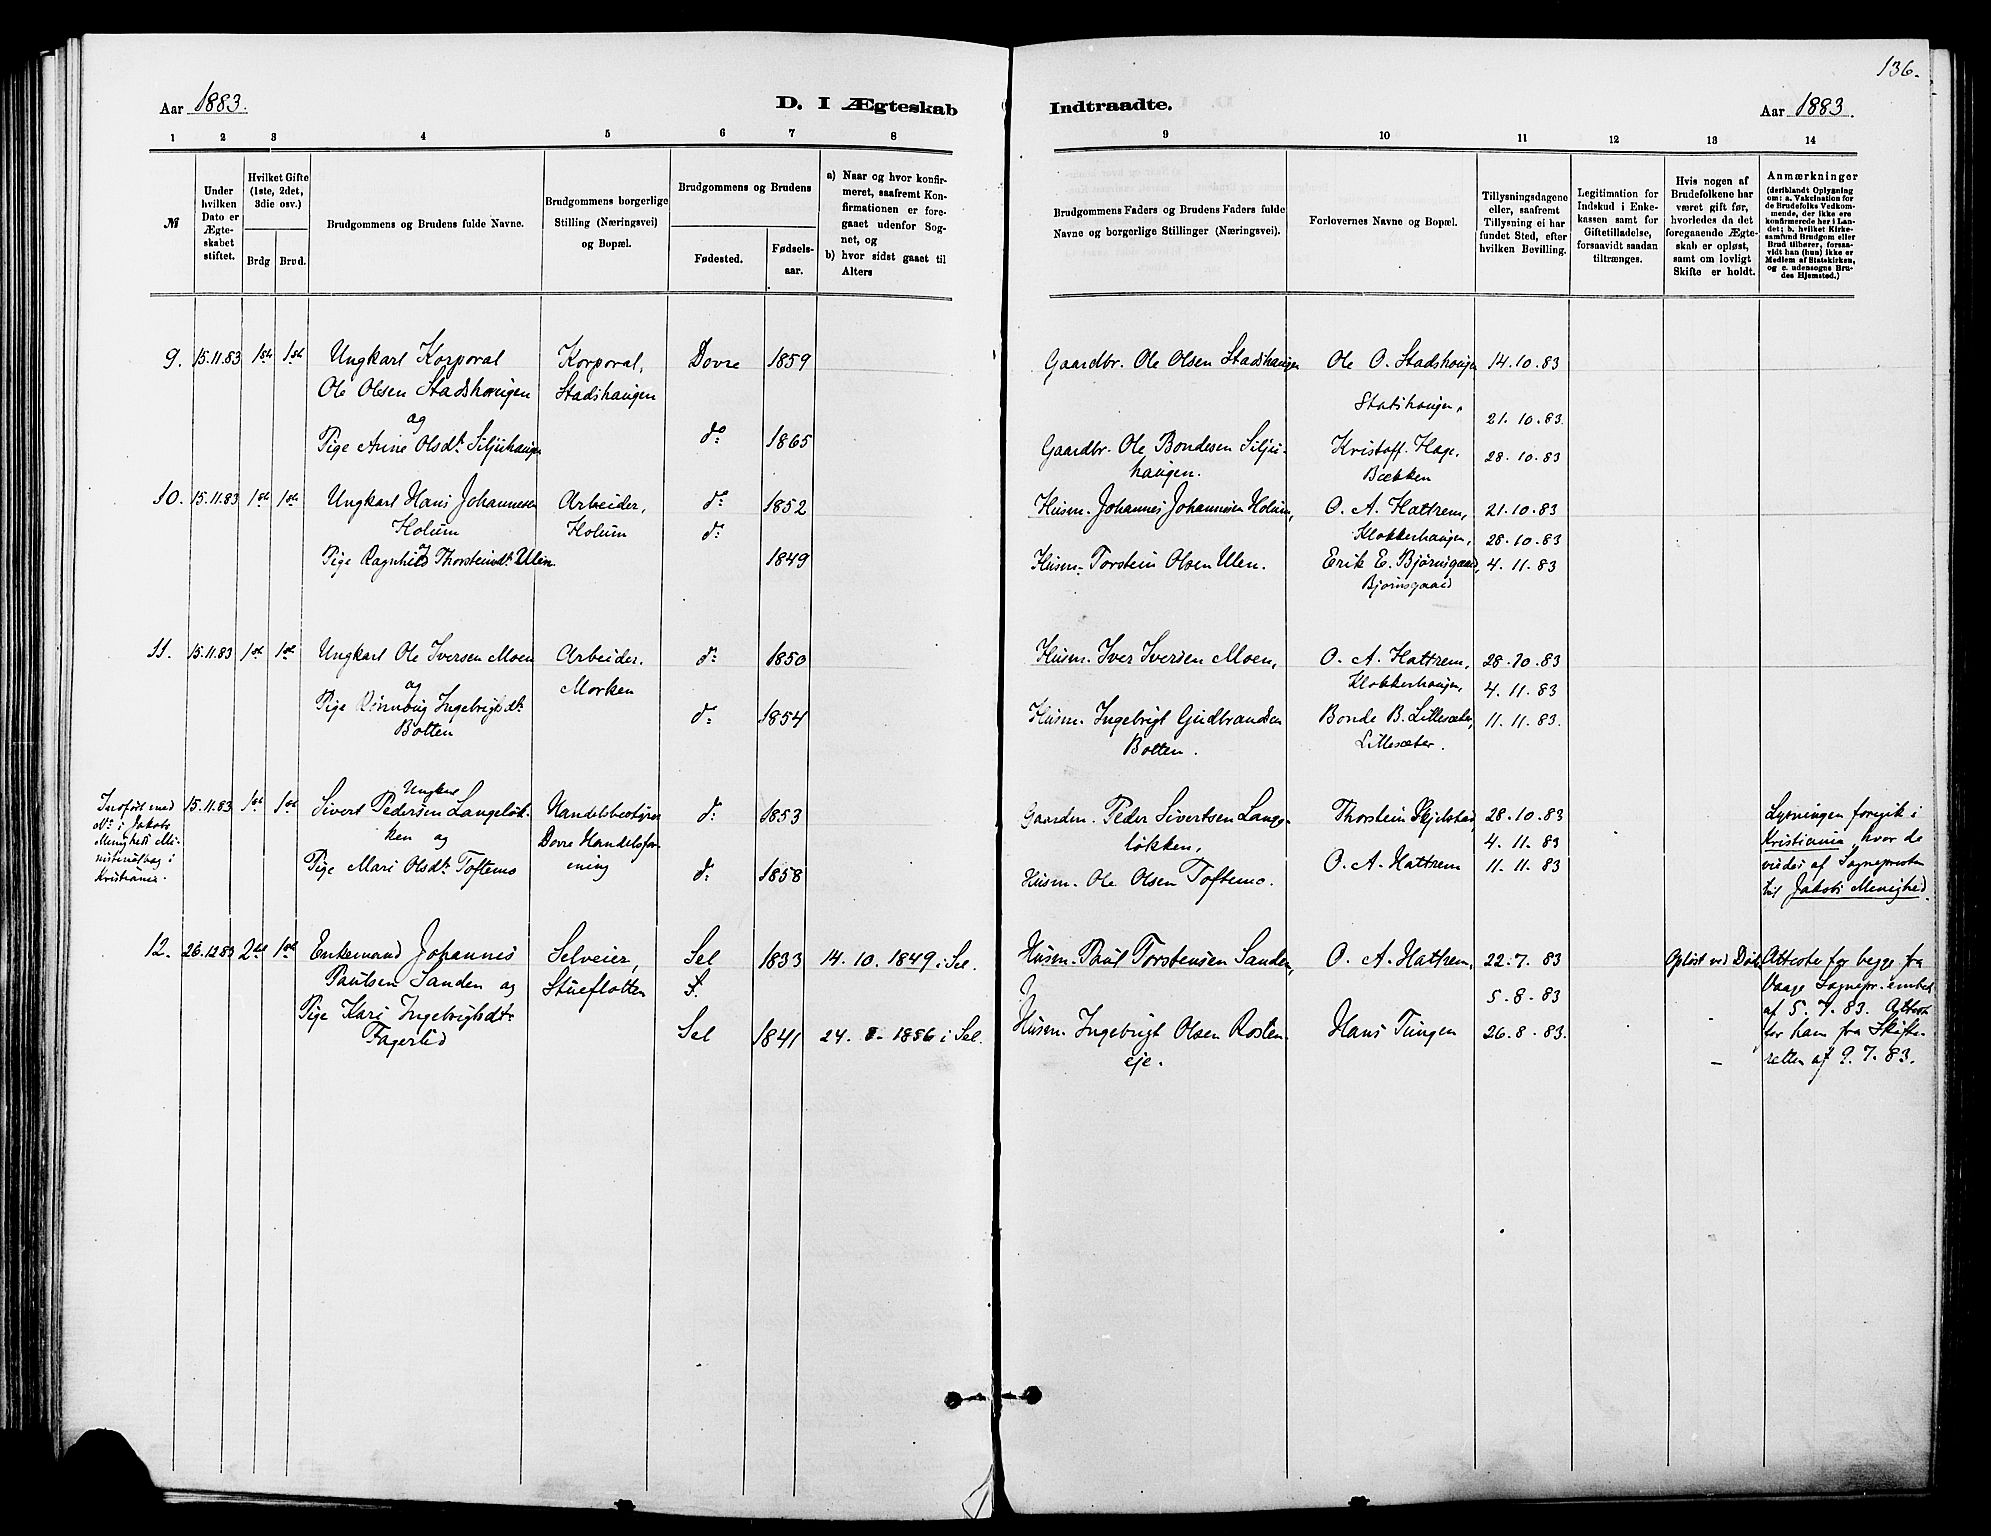 136.
Aar 1883.
D. I Ægteskab
Indtraadte.
Aar 1883.
1 2 3 4 5 6 7 8
9 10 11 12 13 14
№
Under hvilken Dato er Ægteskabet stiftet.
Hvilket Gifte (1ste, 2det, 3die osv.)
Brdg Brud.
Brudgommens og Brudens fulde Navne.
Brudgommens borgerlige Stilling (Næringsvei) og Bopæl.
Brudgommens og Brudens
Fødested.
Fødsels-aar.
a) Naar og hvor konfirmeret, saafremt Konfirmationen er foregaaet udenfor Sognet, og
b) hvor sidst gaaet til Alters
Brudgommens Faders og Brudens Faders fulde Navne og borgerlige Stillinger (Næringsvei).
Forlovernes Navne og Bopæl.
Tillysningsdagene eller, saafremt Tillysning ei har fundet Sted, efter hvilken Bevilling.
Legitimation for Indskud i Enkekassen samt for Giftetilladelse, forsaavidt saadan tiltrænges.
Hvis nogen af Brudefolkene har været gift før, hvorledes da det foregaaende Ægteskab er opløst, samt om lovligt Skifte er holdt.
Anmærkninger
(deriblandt Oplysning om: a. Vakcination for de Brudefolks Vedkommende, der ikke ere konfirmerede her i Landet; b. hvilket Kirkesamfund Brudgom eller Brud tilhører, forsaavidt han (hun) ikke er Medlem af Statskirken, og c. udensogns Brudes Hjemsted.)
9. 15.11.83 1ste 1ste Ungkarl Korporal Korporal, Dovre 1859
Ole Olsen Stadshaugen Stadshaugen
og
Pige Anne Olsdt. Siljuhaugen do 1865
Gaardbr. Ole Olsen Stadshaugen Ole O. Stadshaugen 14.10.83
Stadshaugen. 21.10.83
Gaardbr. Ole Bondesen Silju- Kristoff. Hage, 28.10.83
haugen. Bækken
10. 15.11.83 1ste 1ste Ungkarl Hans Johannesen Arbeider, do 1852
Holum Holum do
og
Pige Ragnhild Thorsteinsdt. Ulen. 1849
Husm. Johannes Johannesen Holum, O. A. Hattrem, 21.10.83
Klokkerhaugen, 28.10.83
Husm. Torstein Olsen Ulen. Erik E. Bjørnsgaard, 4.11.83
Bjørnsgaard
11. 15.11.83 1ste 1ste Ungkarl Ole Iversen Moen Arbeider. do 1850
og Morken
Pige Rønnaug Ingebrigtsdt. do 1854
Botten
Husm. Iver Iversen Moen, O. A. Hattrem, 28.10.83
Klokkerhaugen, 4.11.83
Husm. Ingebrigt Gudbrandsen Bonde B. Lillesæter, 11.11.83.
Botten. Lillesæter.
Indført med
No i Jakobs
Menigheds Mi-
nisterialbog i
Kristiania.
15.11.83 1ste 1ste Ungkarl
Sivert Pedersen Langeløk- Handelsbestyrer do 1853
ken og Dovre Handelsfor-
Pige Mari Olsdt. Toftemo ening do 1858
Gaardm. Peder Sivertsen Lange- Thorstein Skjelstad, 28.10.83
løkken, 4.11.83
Husm. Ole Olsen Toftemo. O. A. Hattrem 11.11.83
Lysningen foregik i
Kristiania, hvor de
viedes af Sognepresten
til Jakobs Menighed.
12. 26.12.83 2det 1ste Enkemand Johannes Selveier, Sel 1833 14.10.1849 i Sel.
Paulsen Sanden og Stueflotten
Pige Kari Ingebrigtsdt. Sel 1841 24. 1856 i Sel.
Fagerlid
Husm. Paul Torstensen Sanden, O. A. Hattrem, 22.7.83 Opløst ved Død
5.8.83
Husm. Ingebrigt Olsen Rosten- Hans Tungen 26.8.83.
eje.
Attester for begge fra
Vaage Sognepr. embed
af 5.7.83. Attest
for ham fra Skifte-
retten af 9.7.83.